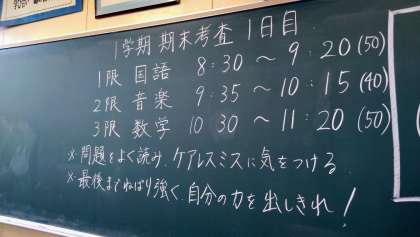 1学期 期末考査 1日目
1限 国語 8:30 〜 9:20 (50)
2限 音楽 9:35 〜 10:15 (40)
3限 数学 10 30 〜 11:20 (50)
※問題をよく読み、ケアレスミスに気をつける
※最後までねばり強く、自分の力を出しきれ！